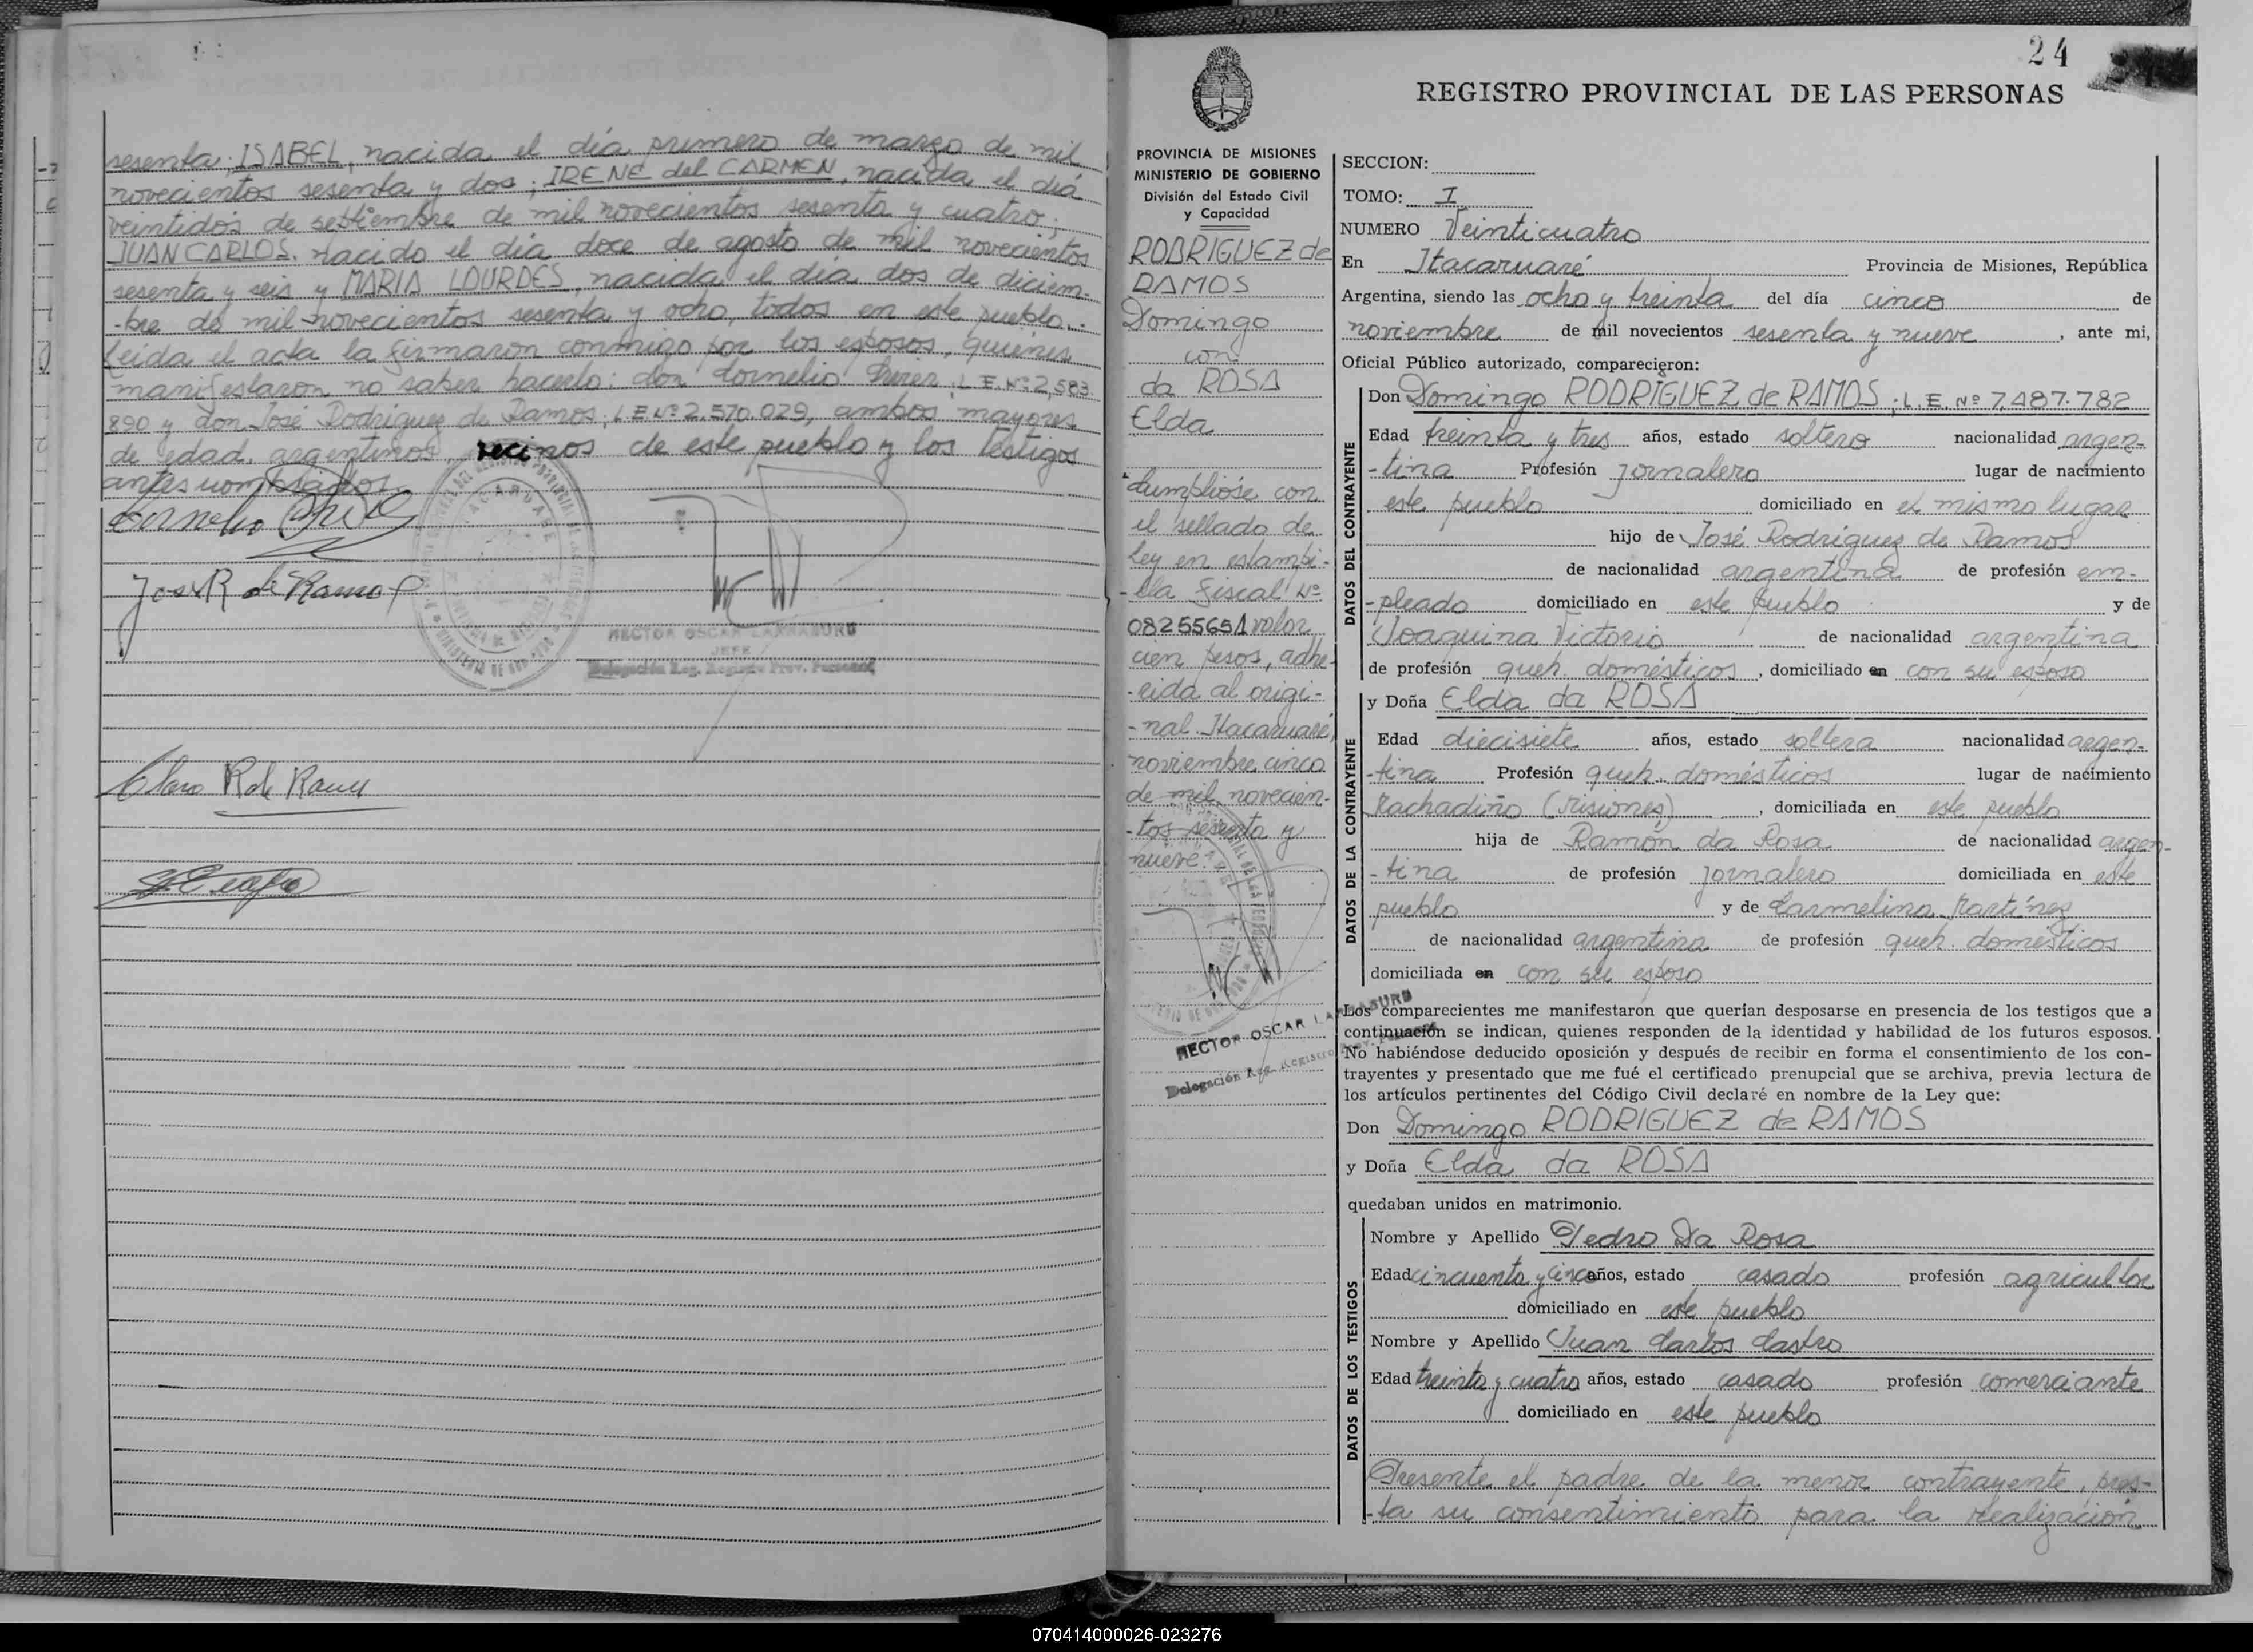 sesenta; ISABEL, nacida el día primero de marzo de mil
novecientos sesenta y dos; IRENE del CARMEN, nacida el día
veintidós de septiembre de mil novecientos sesenta y cuatro;
JUAN CARLOS, nacido el día doce de agosto de mil novecientos
sesenta y seis y MARIA LOURDES, nacida el día dos de diciem-
-bre de mil novecientos sesenta y ocho, todos en este pueblo.
Leida el acta la firmaron conmigo por los esposos, quienes
manifestaron no saber hacerlo: don Cornelio L.E. Nº 2.583.
890 y don José Rodriguez de Ramos, L.E. Nº 2.570.029, ambos mayores
de edad, argentinos, vecinos de este pueblo y los testigos
antes nombrados.
Jose R de Ramos
HECTOR OSCAR LARRABURU
JEFE
Delegación Reg. Registro Prov. Personas
24
REGISTRO PROVINCIAL DE LAS PERSONAS
PROVINCIA DE MISIONES
MINISTERIO DE GOBIERNO
División del Estado Civil
y Capacidad
RODRIGUEZ de
RAMOS
Domingo
con
da ROSA
Elda
Cumplióse con
el sellado de
Ley en estampi-
-lla fiscal Nº
08255651 valor
cien pesos, adhe-
-rida al origi-
-nal. Itacaruaré,
noviembre cinco
de mil novecien-
-tos sesenta y
nueve.
HECTOR OSCAR LARRABURU
Delegación Reg. Registro Prov.
SECCION:
TOMO: I
NUMERO Veinticuatro
En Itacaruaré Provincia de Misiones, República
Argentina, siendo las ocho y treinta del día cinco de
noviembre de mil novecientos sesenta y nueve, ante mi,
Oficial Público autorizado, comparecieron:
DATOS DEL CONTRAYENTE
Don Domingo RODRIGUEZ de RAMOS; L.E. Nº 7.487.782
Edad treinta y tres años, estado soltero nacionalidad argen-
-tina Profesión jornalero lugar de nacimiento
este pueblo domiciliado en el mismo lugar
hijo de José Rodriguez de Ramos
de nacionalidad argentina de profesión em-
-pleado domiciliado en este pueblo y de
Joaquina Victorio de nacionalidad argentina
de profesión queh. domésticos, domiciliado en con su esposo
DATOS DE LA CONTRAYENTE
y Doña Elda da ROSA
Edad diecisiete años, estado soltera nacionalidad argen-
-tina Profesión queh. domésticos lugar de nacimiento
Rachadiño (Misiones), domiciliada en este pueblo
hija de Ramón da Rosa de nacionalidad argen-
-tina de profesión jornalero domiciliada en este
pueblo y de Carmelina Martínez
de nacionalidad argentina de profesión queh. domésticos
domiciliada en con su esposo
Los comparecientes me manifestaron que querían desposarse en presencia de los testigos que a
continuación se indican, quienes responden de la identidad y habilidad de los futuros esposos.
No habiéndose deducido oposición y después de recibir en forma el consentimiento de los con-
trayentes y presentado que me fué el certificado prenupcial que se archiva, previa lectura de
los artículos pertinentes del Código Civil declaré en nombre de la Ley que:
Don Domingo RODRIGUEZ de RAMOS
y Doña Elda da ROSA
quedaban unidos en matrimonio.
DATOS DE LOS TESTIGOS
Nombre y Apellido Pedro Da Rosa
Edad cincuenta y cinco años, estado casado profesión agricultor
domiciliado en este pueblo
Nombre y Apellido Juan Carlos Castro
Edad treinta y cuatro años, estado casado profesión comerciante
domiciliado en este pueblo
Presente el padre de la menor contrayente, pres-
-ta su consentimiento para la realización
070414000026-023276